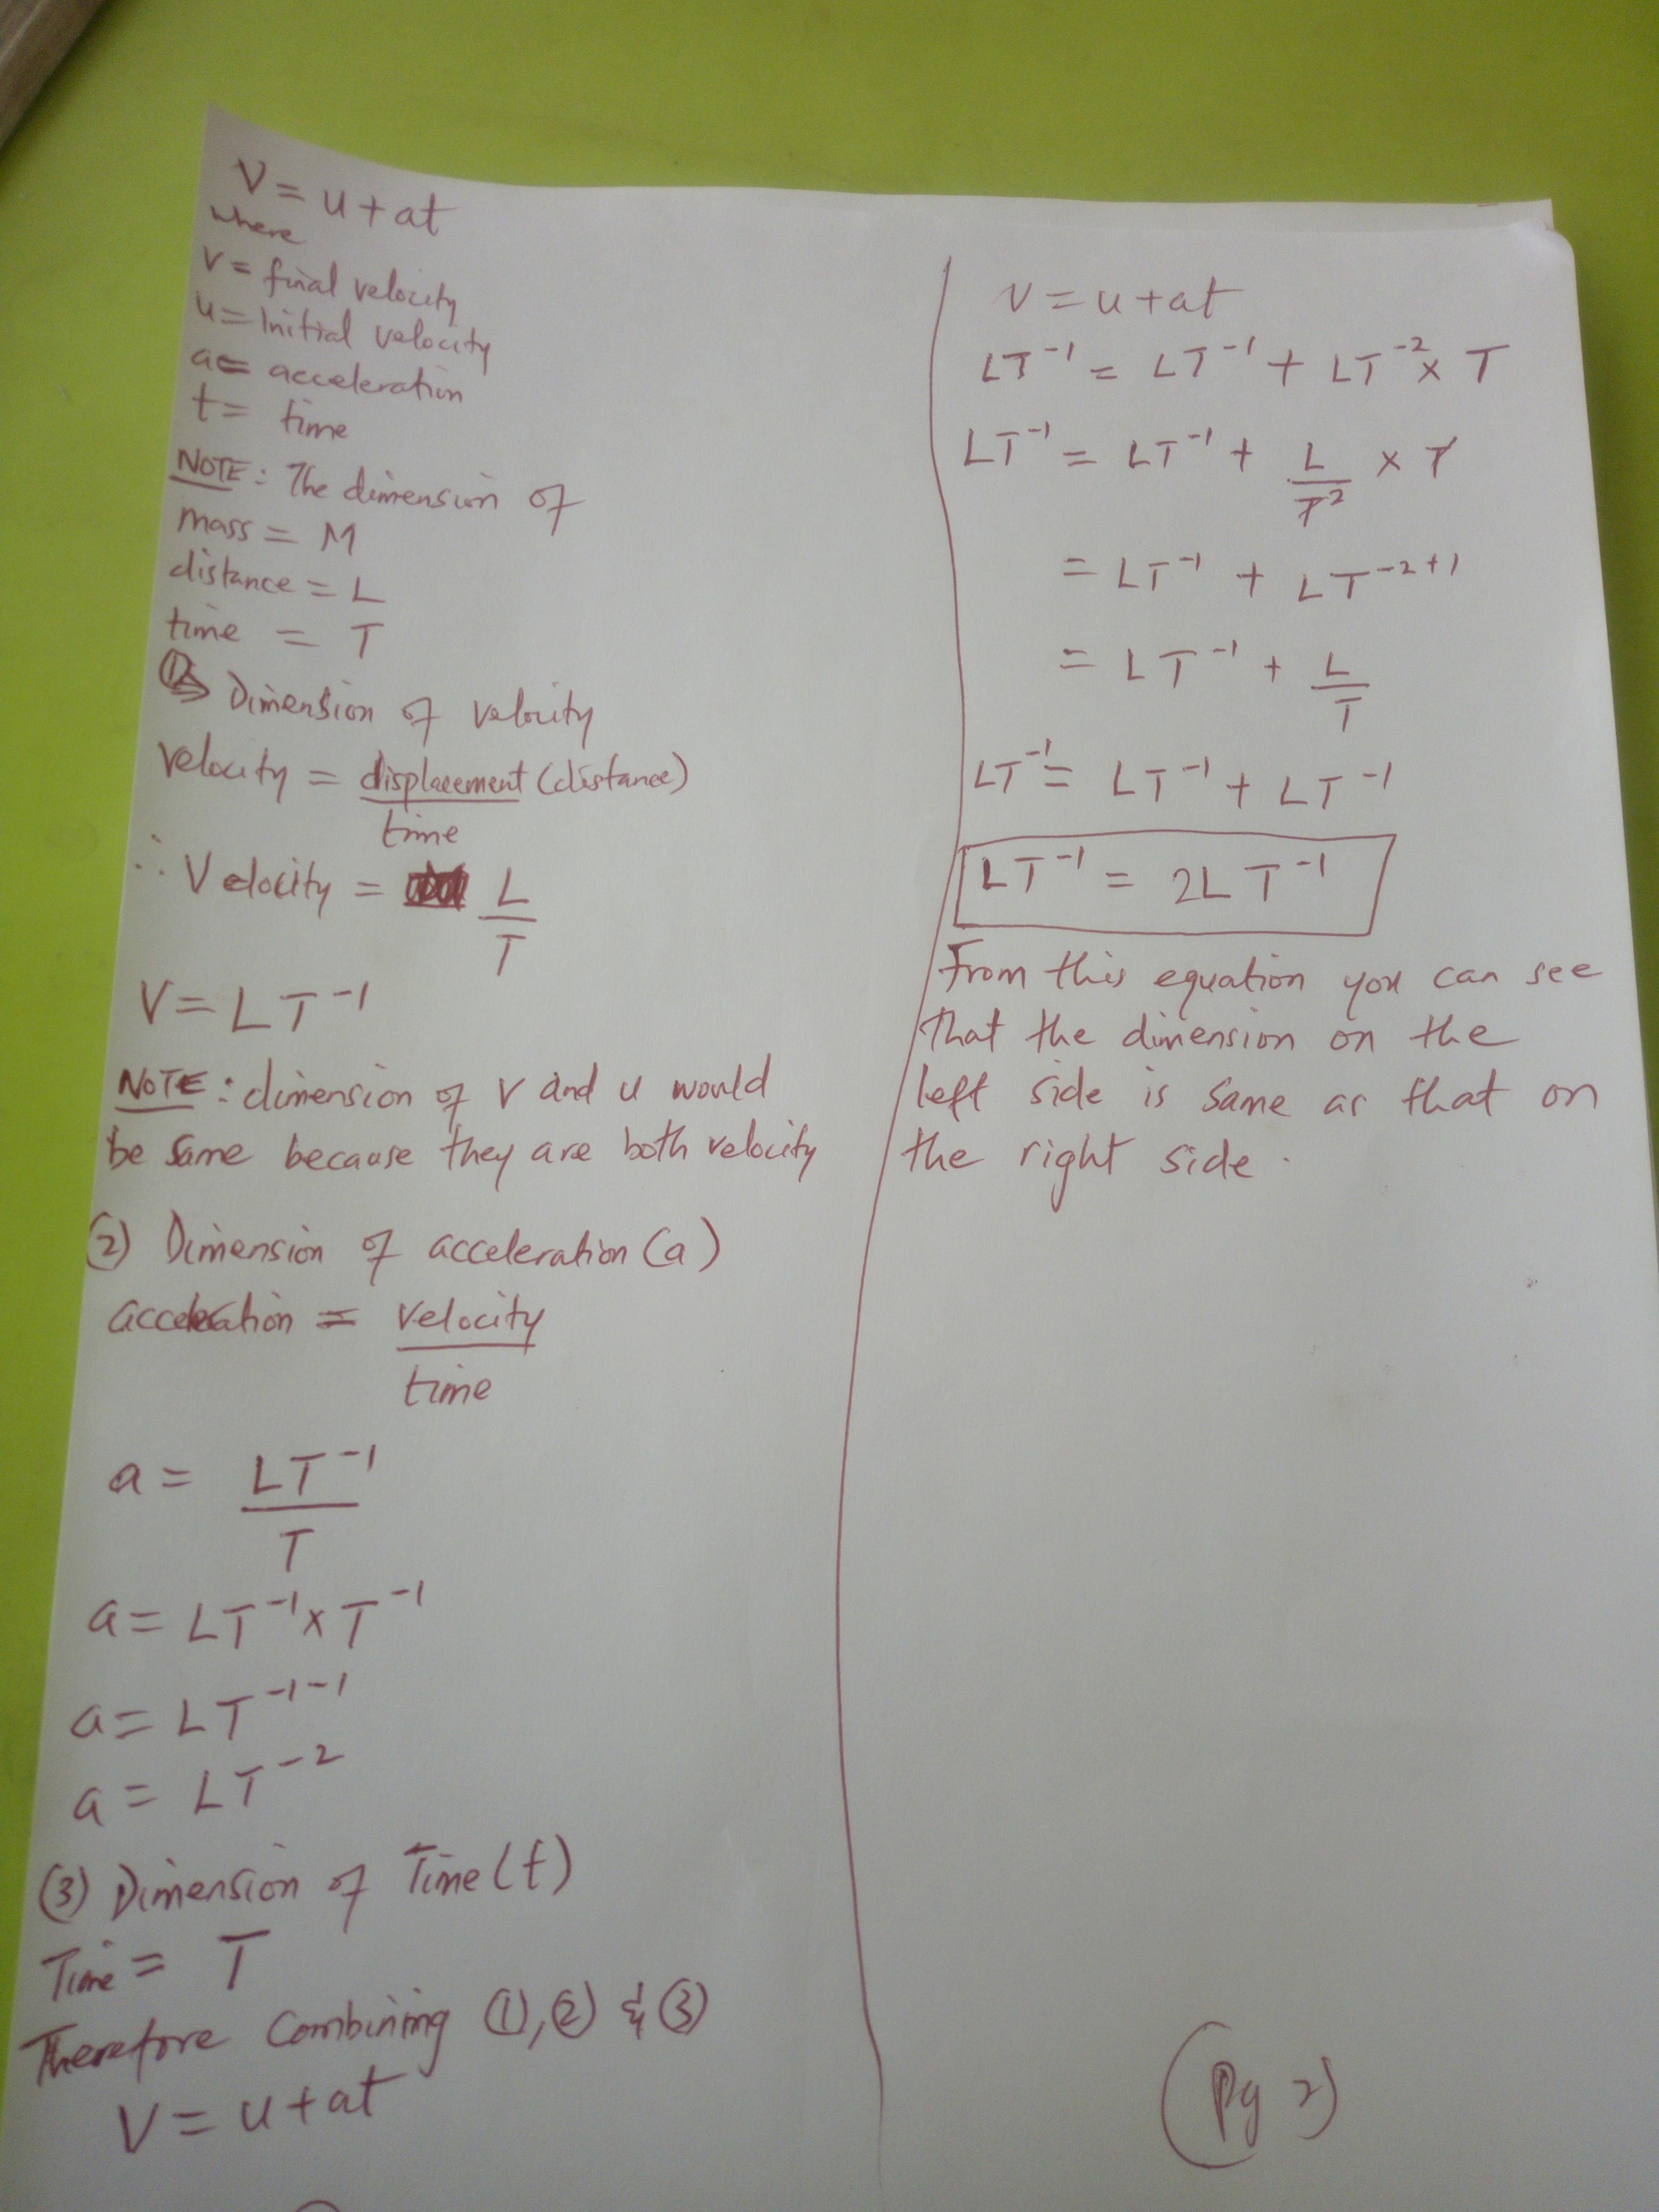 V = u + at
where
v = final velocity
u = Initial velocity
a = acceleration
t = time
NOTE: The dimension of
mass = M
distance = L
time = T
① Dimension of velocity
velocity = displacement (distance)
time
∴ Velocity = L
T
V = LT⁻¹
NOTE: dimension of v and u would
be same because they are both velocity
(2) Dimension of acceleration (a)
acceleration = velocity
time
a = LT⁻¹
T
a = LT⁻¹ x T⁻¹
a = LT⁻¹⁻¹
a = LT⁻²
(3) Dimension of Time (t)
Time = T
Therefore combining (1), (2) & (3)
V = u + at
v = u + at
LT⁻¹ = LT⁻¹ + LT⁻² x T
LT⁻¹ = LT⁻¹ + L x T
T²
= LT⁻¹ + LT⁻²⁺¹
= LT⁻¹ + L
T
LT⁻¹ = LT⁻¹ + LT⁻¹
LT⁻¹ = 2LT⁻¹
From this equation you can see
that the dimension on the
left side is same as that on
the right side.
(Pg 2)